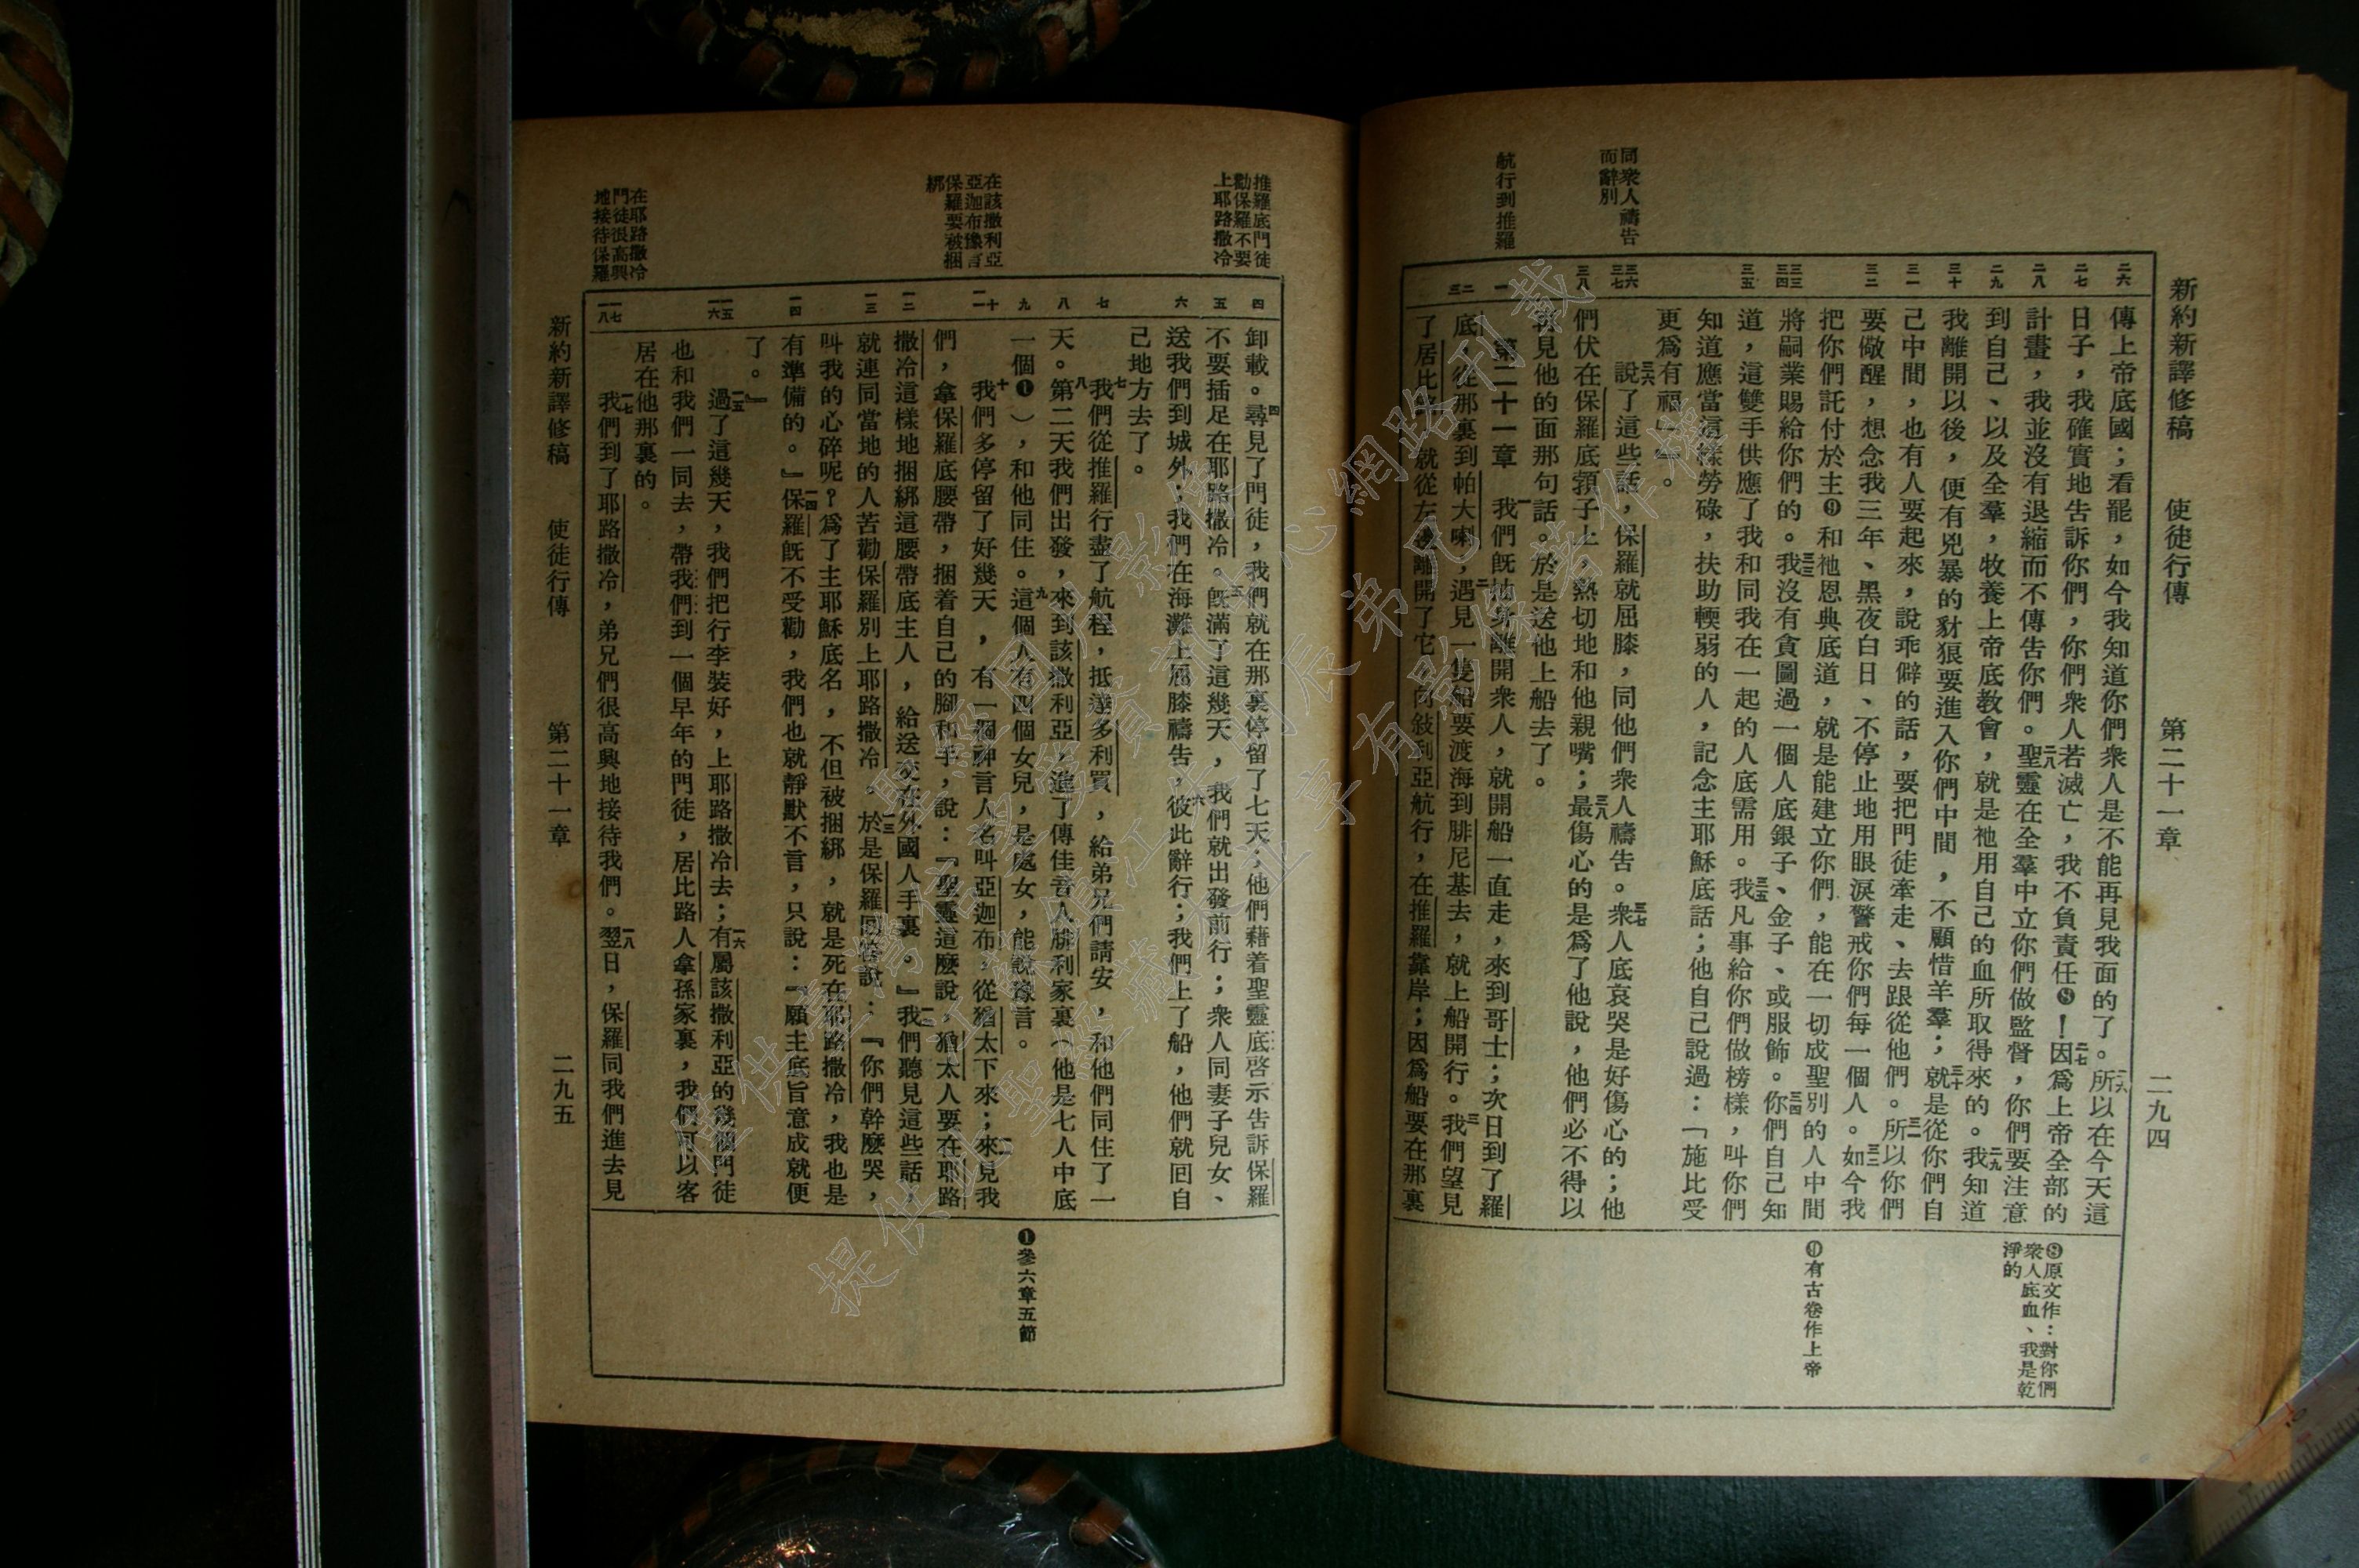 新約新譯修稿　使徒行傳　第二十一章　二九四
同衆人禱告
而辭別
航行到推羅
二六
二七
二八
二九
三十
三一
三二
三三
三四
三五
三六
三七
三八
一
二
三
傳上帝底國；看罷，如今我知道你們衆人是不能再見我面的了。二六所以在今天這
日子，我確實地告訴你們，你們衆人若滅亡，我不負責任❽！二七因爲上帝全部的
計畫，我並沒有退縮而不傳告你們。二八聖靈在全羣中立你們做監督，你們要注意
到自己、以及全羣，牧養上帝底教會，就是祂用自己的血所取得來的。二九我知道
我離開以後，便有兇暴的豺狼要進入你們中間，不顧惜羊羣；三十就是從你們自
己中間，也有人要起來，說乖僻的話，要把門徒牽走、去跟從他們。三一所以你們
要儆醒，想念我三年、黑夜白日、不停止地用眼淚警戒你們每一個人。三二如今我
把你們託付於主❾和祂恩典底道，就是能建立你們，能在一切成聖別的人中間
將嗣業賜給你們的。三三我沒有貪圖過一個人底銀子、金子、或服飾。三四你們自己知
道，這雙手供應了我和同我在一起的人底需用。三五我凡事給你們做榜樣，叫你們
知道應當這樣勞碌，扶助輭弱的人，記念主耶穌底話；他自己說過：「施比受
更爲有福」。
三六說了這些話，保羅就屈膝，同他們衆人禱告。三七衆人底哀哭是好傷心的；他
們伏在保羅底頸子上，熱切地和他親嘴；三八最傷心的是爲了他說，他們必不得以
再見他的面那句話。於是送他上船去了。
第二十一章　一我們旣抽身離開衆人，就開船一直走，來到哥士；次日到了羅
底，從那裏到帕大喇，二遇見一隻船要渡海到腓尼基去，就上船開行。三我們望見
了居比路，就從左邊離開了它，向敍利亞航行，在推羅靠岸；因爲船要在那裏
❽原文作：對你們
衆人底血、我是乾
淨的
❾有古卷作上帝
推羅底門徒
勸保羅不要
上耶路撒冷
在該撒利亞
亞迦布豫言
保羅要被捆
綁
在耶路撒冷
門徒很高興
地接待保羅
四
五
六
七
八
九
十
一一
一二
一三
一四
一五
一六
一七
一八
卸載。四尋見了門徒，我們就在那裏停留了七天；他們藉着聖靈底啓示告訴保羅
不要插足在耶路撒冷。五旣滿了這幾天，我們就出發前行；衆人同妻子兒女、
送我們到城外；我們在海灘上屈膝禱告，六彼此辭行；我們上了船，他們就回自
己地方去了。
七我們從推羅行盡了航程，抵達多利買，給弟兄們請安，和他們同住了一
天。八第二天我們出發，來到該撒利亞，進了傳佳音人腓利家裏（他是七人中底
一個❶），和他同住。九這個人有四個女兒，是處女，能說豫言。
十我們多停留了好幾天，有一個神言人名叫亞迦布，從猶太下來；一一來見我
們，拿保羅底腰帶，捆着自己的腳和手，說：『聖靈這麼說，猶太人要在耶路
撒冷這樣地捆綁這腰帶底主人，給送交在外國人手裏。』一二我們聽見這些話，
就連同當地的人苦勸保羅別上耶路撒冷。一三於是保羅回答說：『你們幹麼哭，
叫我的心碎呢？爲了主耶穌底名，不但被捆綁，就是死在耶路撒冷，我也是
有準備的。』一四保羅旣不受勸，我們也就靜默不言，只說：『願主底旨意成就便
了。』
一五過了這幾天，我們把行李裝好，上耶路撒冷去；一六有屬該撒利亞的幾個門徒
也和我們一同去，帶我們到一個早年的門徒，居比路人拿孫家裏，我們可以客
居在他那裏的。
一七我們到了耶路撒冷，弟兄們很高興地接待我們。一八翌日，保羅同我們進去見
❶參六章五節
新約新譯修稿　使徒行傳　第二十一章　二九五